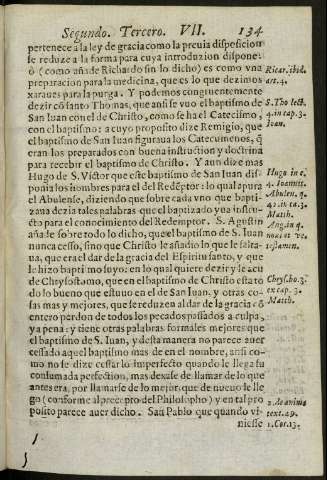 Segundo. Tercero. VII. 134
pertenece a la ley de gracia como la preuia disposicion
se reduze a la forma para cuya introduzion dispone:
ò (como añade Richardo sin lo dicho) es como vna
preparacion para la medicina, que es lo que dezimos
xaraues para la purga. Y podemos congruentemente
dezir cō santo Thomas, que ansi se vuo el baptismo de
San Iuan con el de Christo, como se ha el Catecismo,
con el baptismo: a cuyo proposito dize Remigio, que
el baptismo de San Iuan figuraua los Catecumenos, q̄
eran los preparados con buena instruction y doctrina
para recebir el baptismo de Christo. Y aun dize mas
Hugo de S. Victor que este baptismo de San Iuan dis-
ponia los hombres para el del Redēptor: lo qual apura
el Abulense, diziendo que sobre cada vno que bapti-
zaua dezia tales palabras que el baptizado yua instru-
cto para el conocimiento del Redemptor. S. Agustin
añade sobre todo lo dicho, que el baptismo de S. Iuan
nunca cesso, sino que Christo le añadio lo que le falta-
ua, que era el dar de la gracia del Espiritu santo, y que
le hizo baptismo suyo: en lo qual quiere dezir y le acu
de Chrysostomo, que en el baptismo de Christo esta to
do lo bueno que estuuo en el de San Iuan, y otras co-
sas mas y mejores, que se reduzen al dar de la gracia cō
entero perdon de todos los pecados passados a culpa,
y a pena: y tiene otras palabras formales mejores que
el baptismo de S. Iuan, y desta manera no parece auer
cessado aquel baptismo mas de en el nombre, ansi co-
mo no se dize cessar lo imperfecto quando le llega su
consumada perfection, mas dexase de llamar de lo que
antes era, por llamarse de lo mejor que de nueuo le lle
go (conforme al precepto del Philosopho) y en tal pro
posito parece auer dicho San Pablo que quando vi-
niesse
Ricar. ibid.
art. 4.
S. Tho lect.
4. in cap. 3.
Ioan.
Hugo in c.
4. Ioannis.
Abulen. q.
42. in ca. 3.
Matth.
Aug. in q.
noui et ve.
testamen.
Chrys. ho. 3.
ex cap. 3.
Matth.
2. de anima
text. 49.
1. Cor. 13.